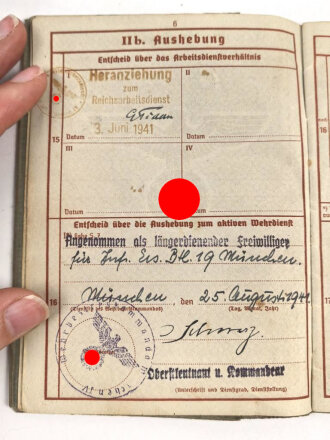 6
IIb. Aushebung
Entscheid über das Arbeitsdienstverhältnis
I
II
Heranziehung
zum
Reichsarbeitsdienst
Datum
3. Juni 1941
Datum
15
III
IV
Datum
Datum
Entscheid über die Aushebung zum aktiven Wehrdienst
Angenommen als längerdienender Freiwilliger
für Inf. Ers. Btl. 19 München.
16
München
25. August 1941
(Tag, Monat, Jahr)
Oberstleutnant u. Kommandeur
(Unterschrift und Dienstgrad, Dienststellung)